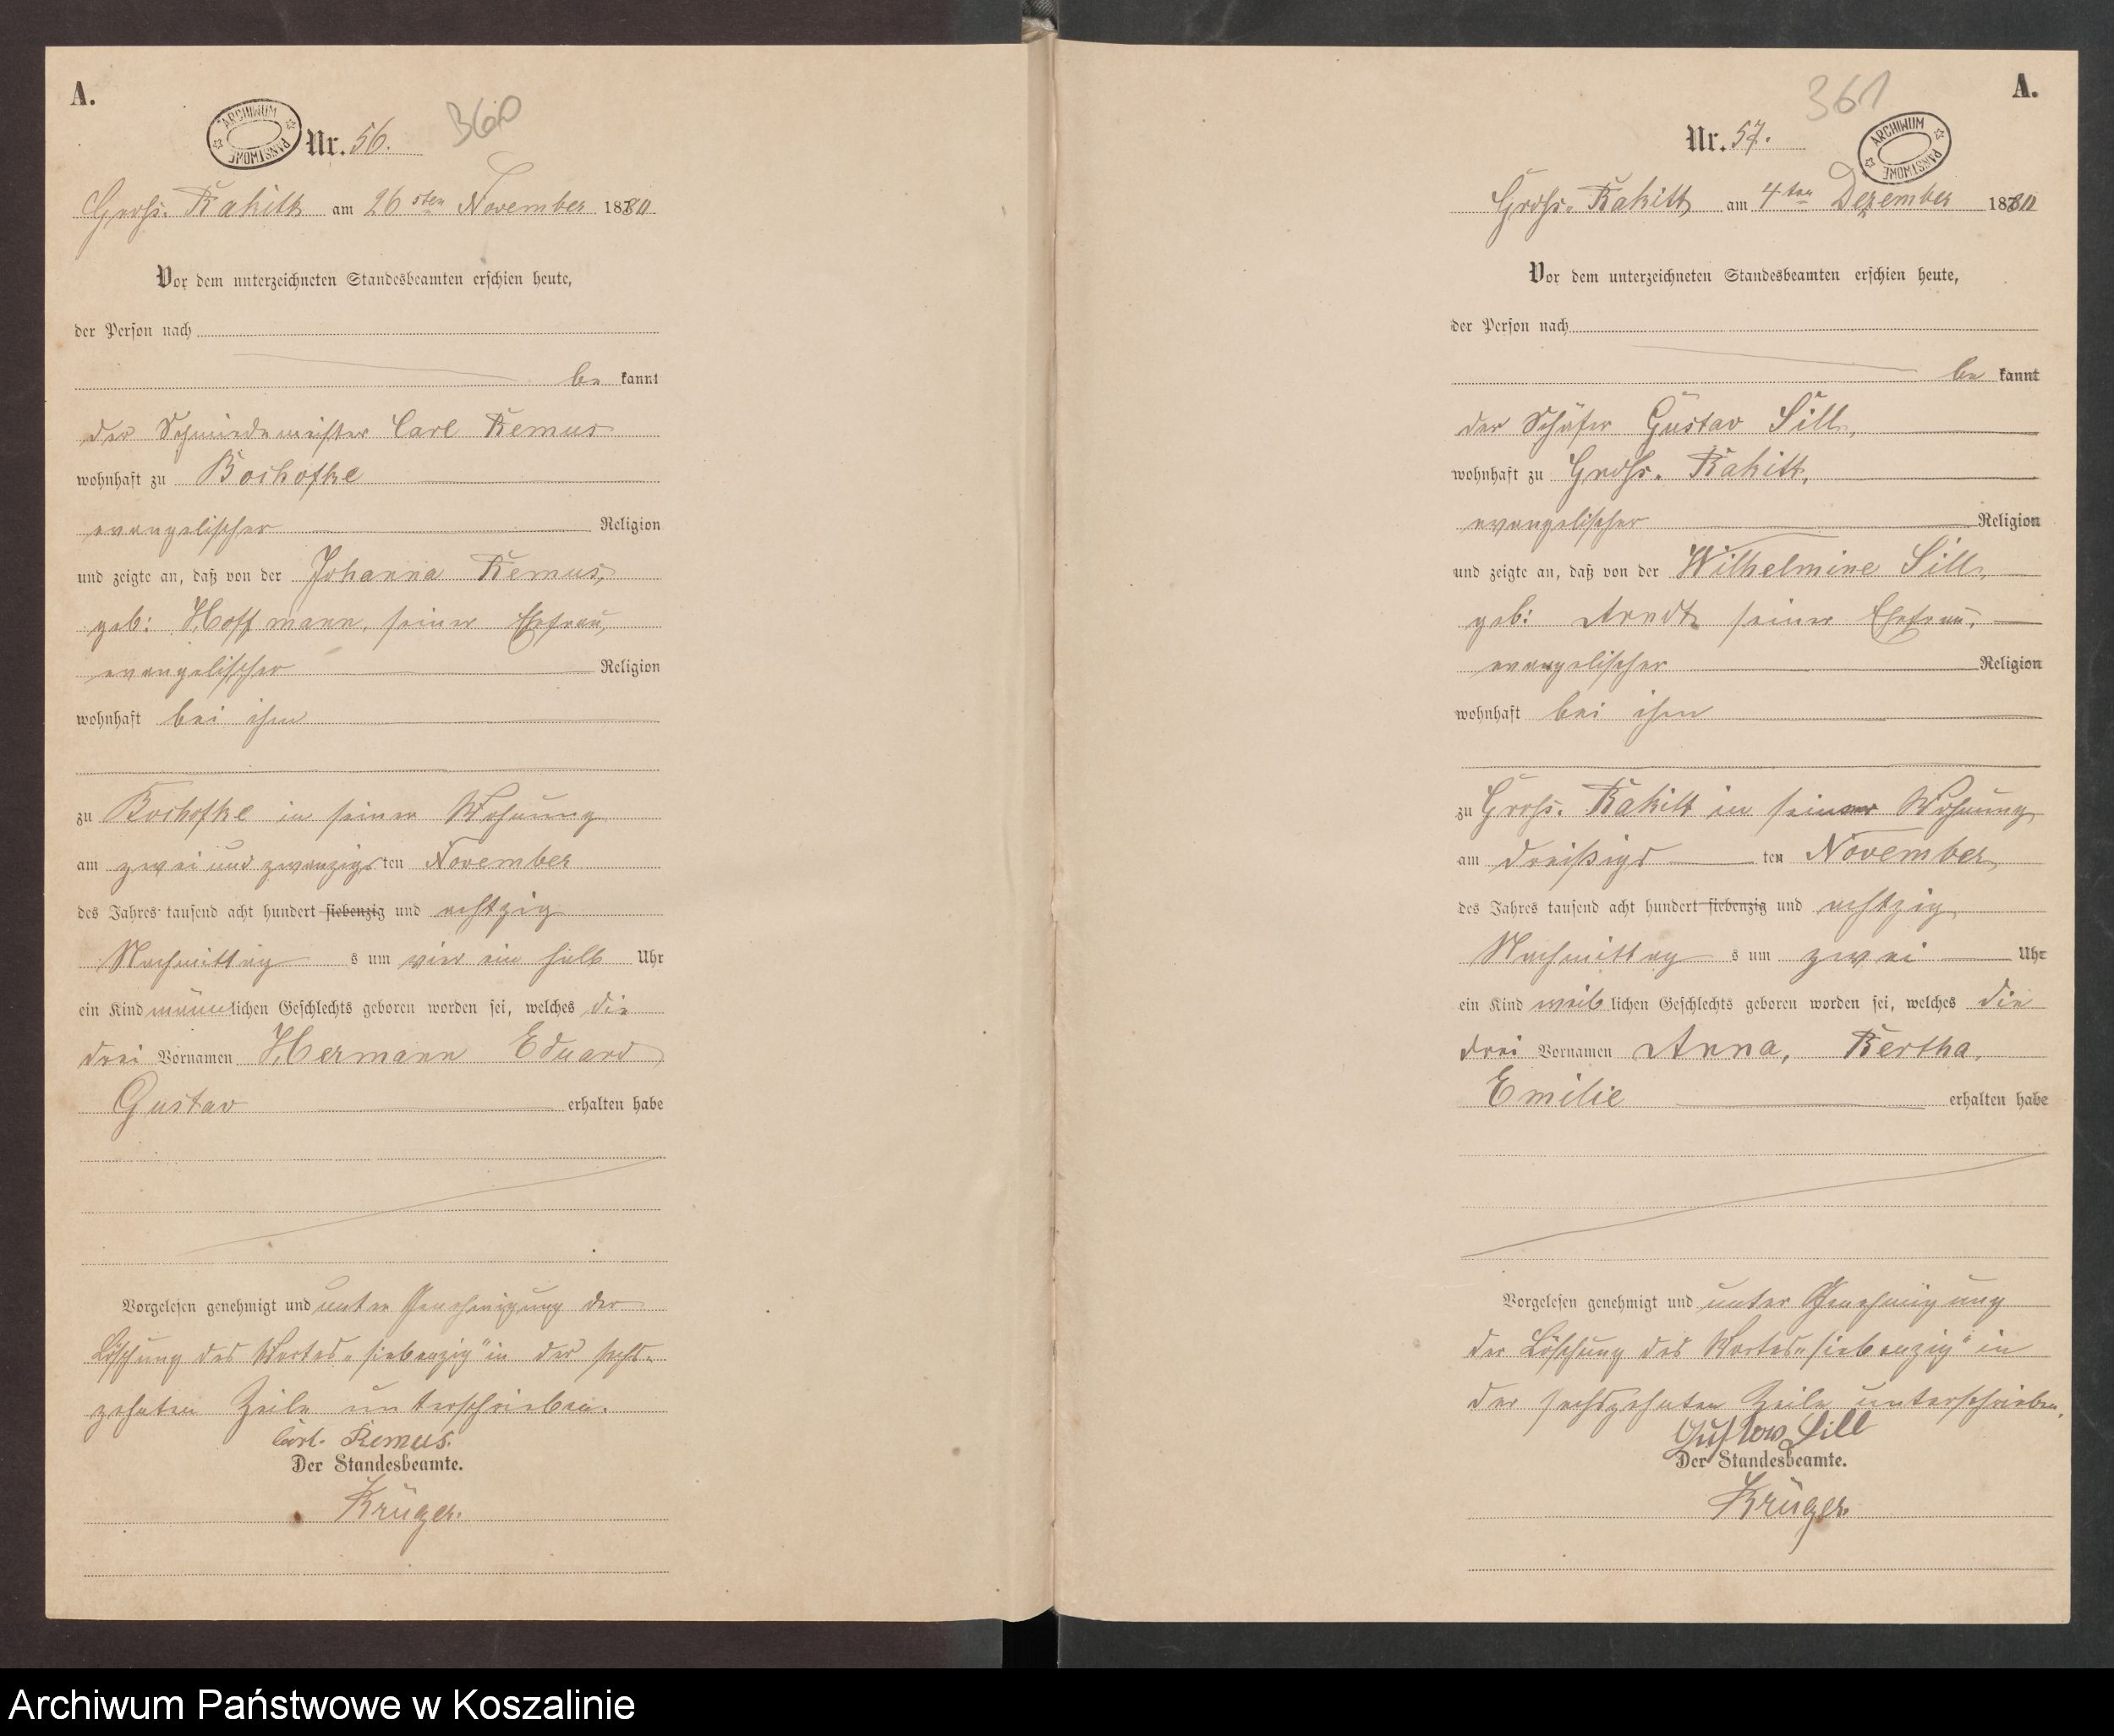 A.
ARCHIWUM PAŃSTWOWE
Nr. 56.
360
Groß. Rakitt am 26sten November 1880
Vor dem unterzeichneten Standesbeamten erschien heute,
der Person nach
be kannt
der Schmiedemeister Carl Remus
wohnhaft zu Bochofke
evangelischer Religion
und zeigte an, daß von der Johanna Remus,
geb: Hoffmann, seiner Ehefrau,
evangelischer Religion
wohnhaft bei ihm
zu Bochofke in seiner Wohnung
am zwei und zwanzigsten November
des Jahres tausend acht hundert siebenzig und achtzig
Nachmittag s um vier ein halb Uhr
ein Kind männlichen Geschlechts geboren worden sei, welches die
drei Vornamen Hermann Eduard
Gustav erhalten habe
Vorgelesen genehmigt und unter Genehmigung der
Löschung des Wortes „siebenzig" in der sechs-
zehnten Zeile unterschrieben.
Carl. Remus.
Der Standesbeamte.
Krüger.
A.
361
Nr. 57.
ARCHIWUM PAŃSTWOWE
Groß. Rakitt, am 4ten Dezember 1880
Vor dem unterzeichneten Standesbeamten erschien heute,
der Person nach
be kannt
der Schäfer Gustav Sill,
wohnhaft zu Groß. Rakitt,
evangelischer Religion
und zeigte an, daß von der Wilhelmine Sill,
geb: Arndt seiner Ehefrau,
evangelischer Religion
wohnhaft bei ihm
zu Groß. Rakitt in seiner Wohnung
am dreißigs ten November,
des Jahres tausend acht hundert siebenzig und achtzig,
Nachmittag s um zwei Uhr
ein Kind weiblichen Geschlechts geboren worden sei, welches die
drei Vornamen Anna, Bertha,
Emilie erhalten habe
Vorgelesen genehmigt und unter Genehmigung
der Löschung des Wortes „siebenzig" in
der sechszehnten Zeile unterschrieben.
Gustav Sill
Der Standesbeamte.
Krüger.
Archiwum Państwowe w Koszalinie